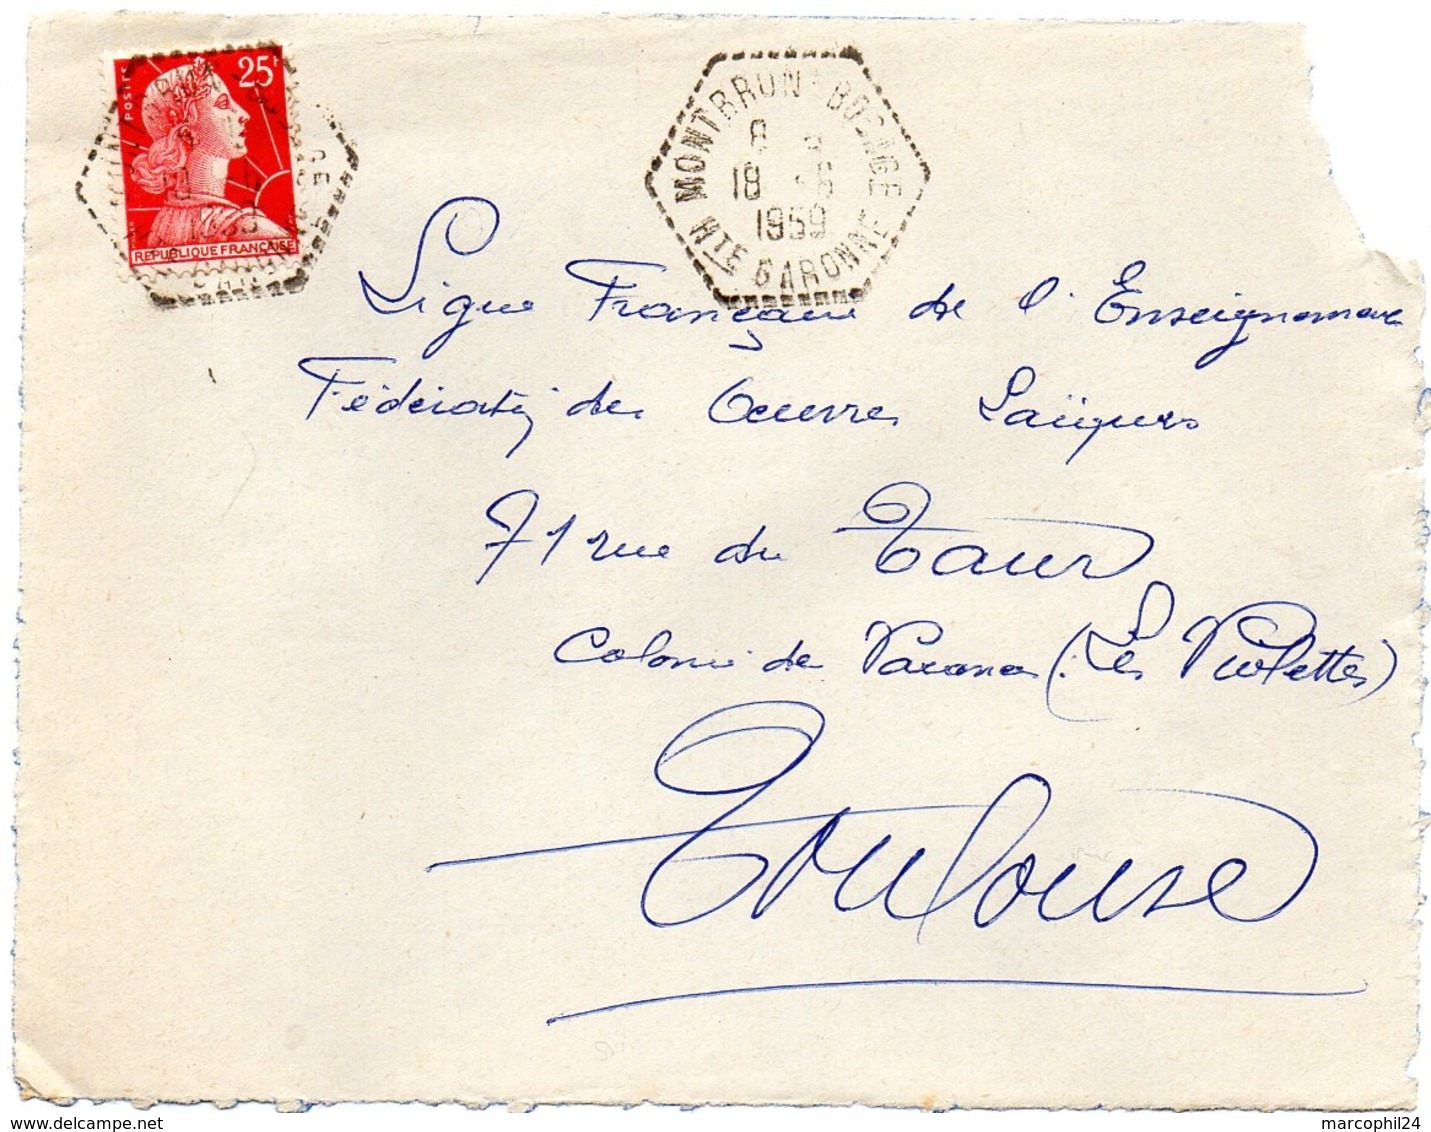 POSTES
25F
REPUBLIQUE FRANÇAISE
MONTBRUN-BOCAGE
18 -6
1959
HTE GARONNE
Ligue Française de l'Enseignement
Fédérat° des Oeuvres Laïques
71 rue du Taur
Colonie de Vacances (Les Violettes)
Toulouse
marcophil24